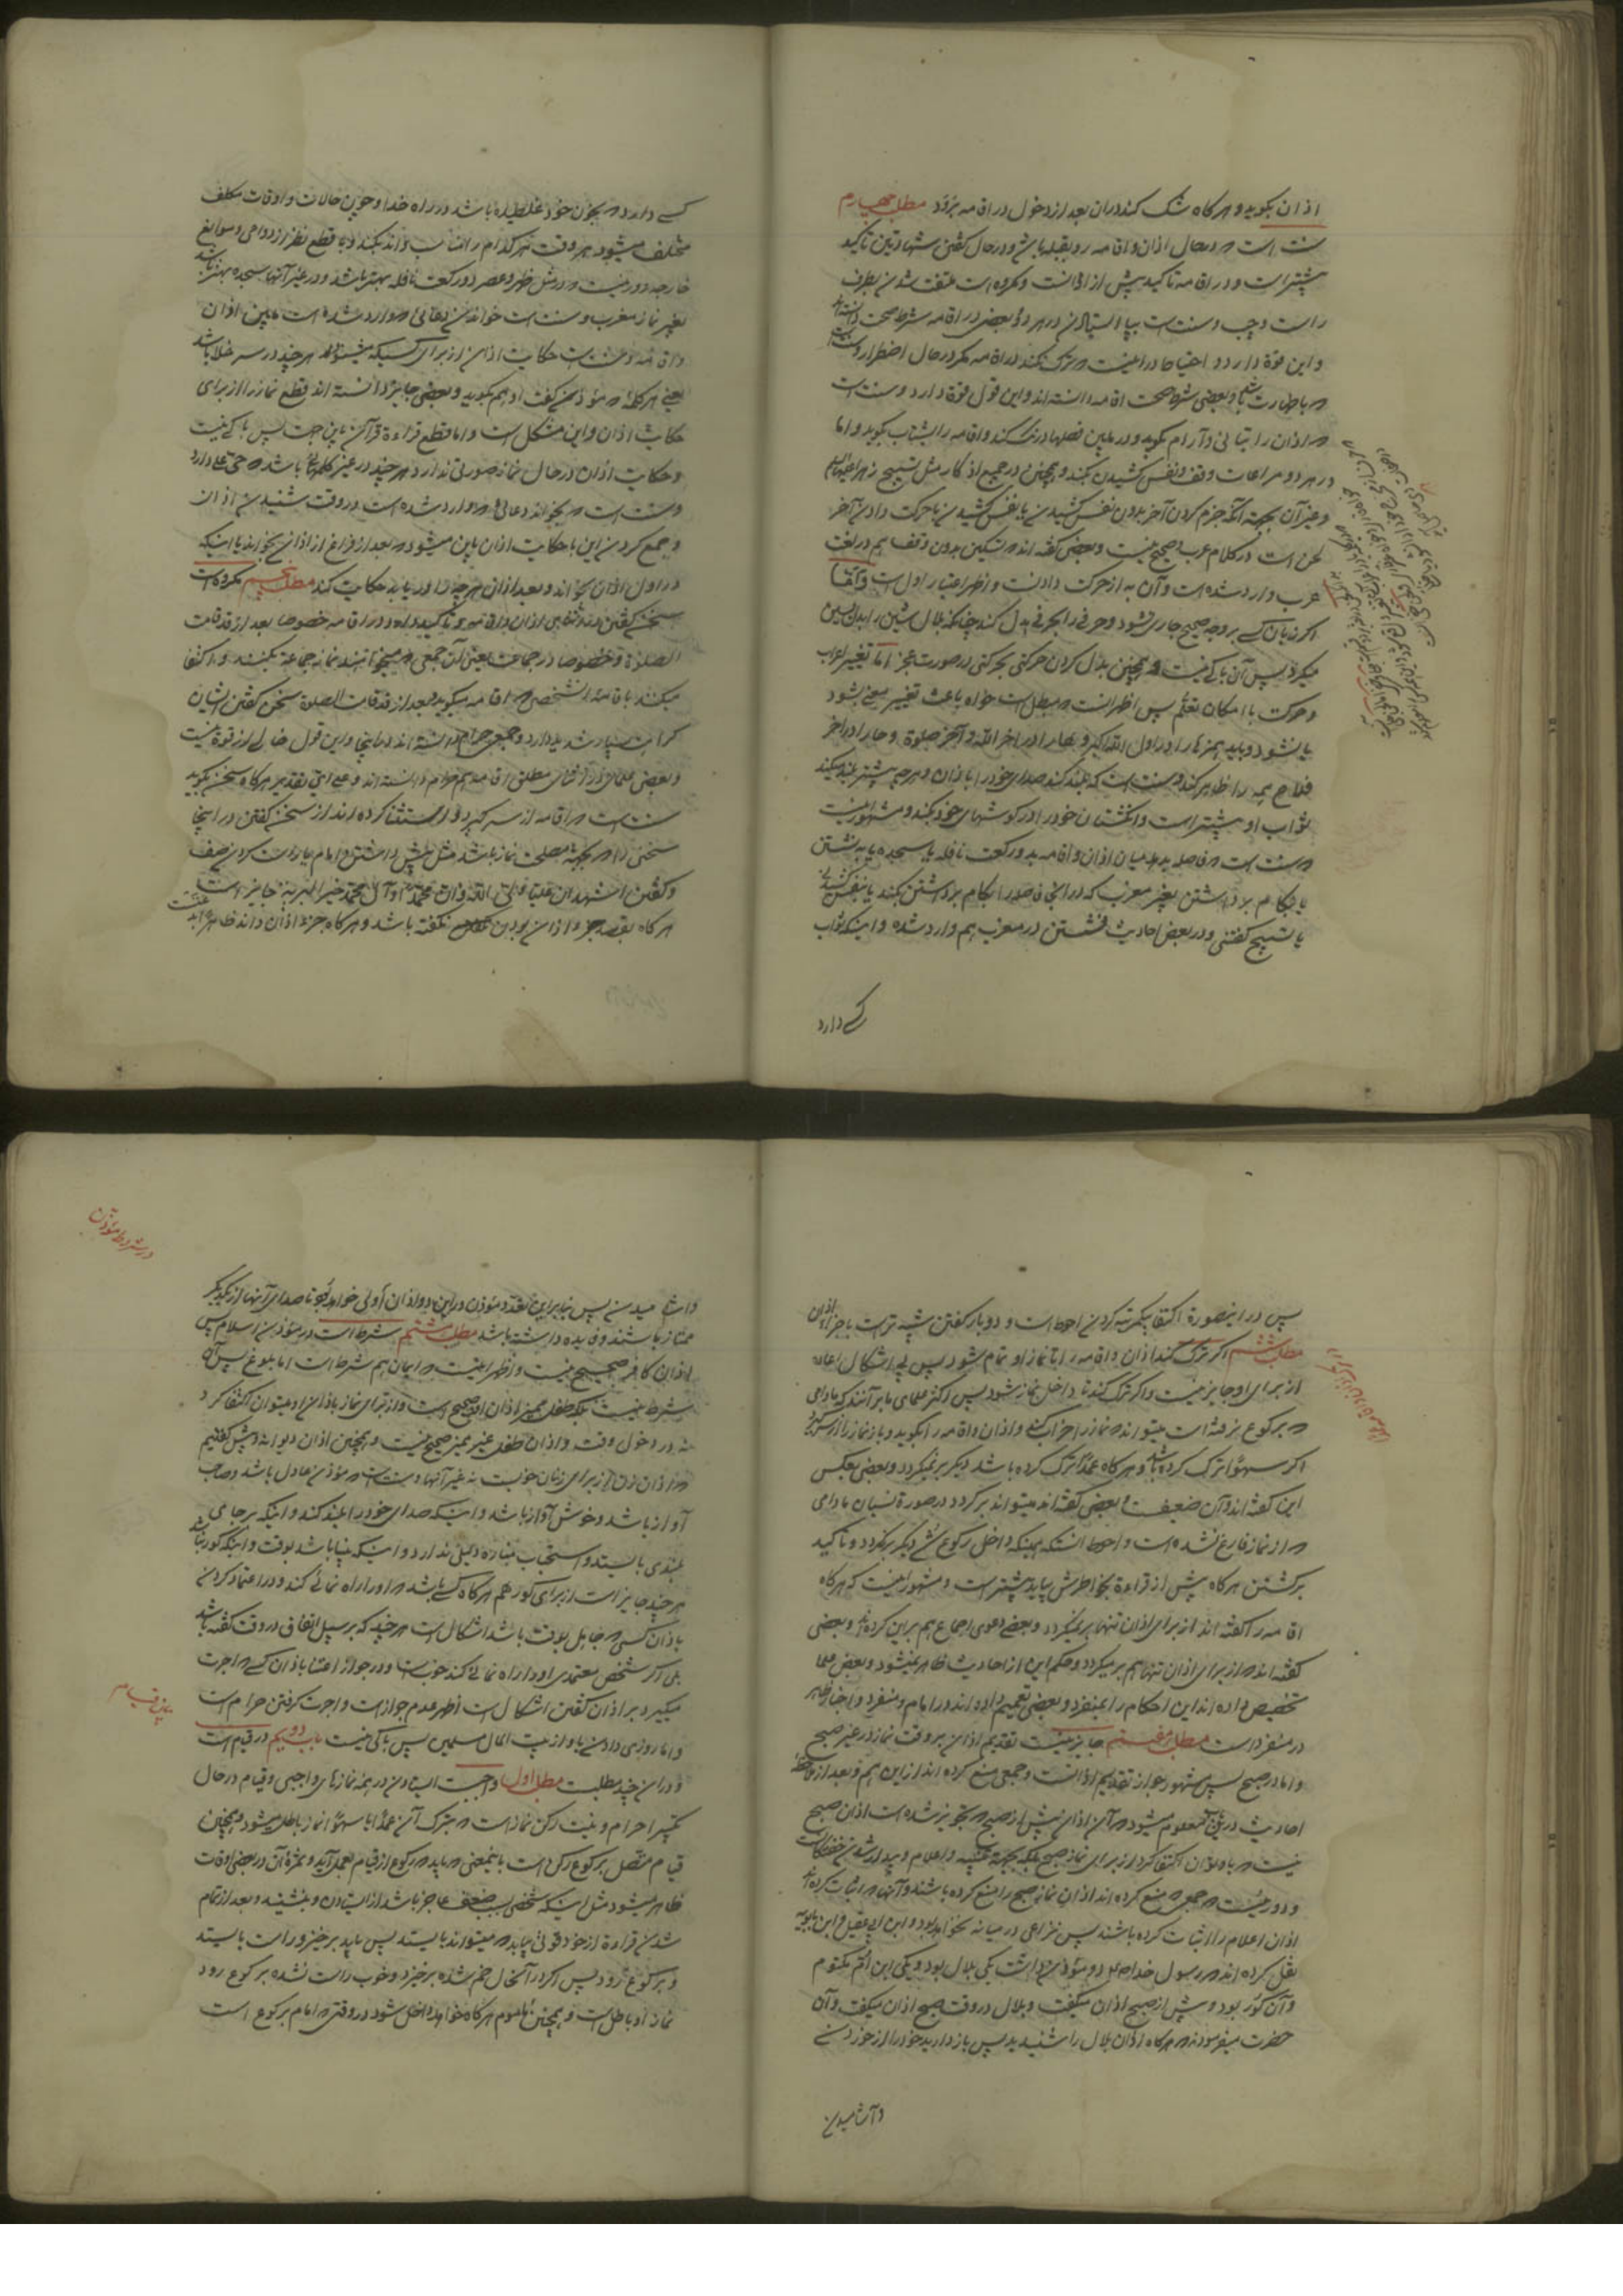 اذان بگوید و هر گاه شک کند در ان بعد از دخول در اقامه برنگردد مطلب چهارم
سنت است که در حال اذان و اقامه رو بقبله باشد و در حال گفتن شهادتین تاکید
بیشتر است و در اقامه تاکید بیش از اذانست و مکروه است ملتفت شدن بطرف
راست و چپ و سنت است بپا ایستادن در هر دو و بعضی در اقامه شرط صحت دانسته اند
و این قوة دارد و احتیاط در اینست که ترک نکند در اقامه مگر در حال اضطرار و سنت است
که با طهارت باشد و بعضی شرط صحت اقامه دانسته اند و این قول قوة دارد و سنت است
که اذان را بتانی و آرام بگوید و در مابین فصلها درنگ کند و اقامه را بشتاب بگوید و اما
در هر دو مراعات وقف و نفس کشیدن بکند و همچنین در جمیع اذکار مثل تسبیح زهرا علیها السلام
و غیر آن بجهة آنکه جزم کردن آخر بدون نفس کشیدن یا نفس کشیدن با حرکت دادن آخر
لحن است در کلام عرب و صحیح نیست و بعضی گفته اند که تسکین بدون وقف هم در لغت
عرب وارد شده است و آن به از حرکت دادنست و اظهر اعتبار اول است و آنفا
اگر زبان کسی بر وجه صحیح جاری نشود و حرفی را بحرفی بدل کند چنانکه بلال شین را بدل بسین
میکرد پس آن باکی نیست و همچنین بدل کردن حرکتی بحرکتی در صورت عجز اما تغییر اعراب
و حرکت با امکان تعلم پس اظهر انست که مبطل است خواه باعث تغییر معنی بشود
یا نشود و باید همزه را در اول الله اکبر و هار ا در اخر الله و آخر صلوة و حار ا در اخر
فلاح همه را ظاهر کند و سنت است که بلند کند صدای خود را باذان و هر چه بیشتر بلند میکند
ثواب او بیشتر است و انگشتان خود را در گوشهای خود بکند و مشهور اینست
که سنت است که فاصله بدهد میان اذان و اقامه بدو رکعت نافله یا سجده یا به نشستن
یا بگام برداشتن بغیر مغرب که در انجا فاصله را بگام برداشتن بکند یا بنفس کشیدنی
یا تسبیح گفتنی و در بعض احادیث نشستن در مغرب هم وارد شده و اینکه ثواب
کسی دارد
کسی دارد که بخون خود غلطیده باشد در راه خدا و چون حالات و اوقات مکلف
مختلف میشود هر وقت هر کدام را مناسب داند بکند و با قطع نظر از دواعی و موانع
خارجه دور نیست که در مثل ظهر و عصر دو رکعت نافله بهتر باشد و در غیر آنها سجده بهتر باشد
بغیر نماز مغرب و سنت است خواندن دعائی که وارد شده است مابین اذان
و اقامه و سنت است حکایت اذان از برای کسیکه میشنود هر چند در سر خلا باشد
یعنی هر کلمه که مؤذن گفت او هم بگوید و بعضی جایز دانسته اند قطع نماز را از برای
حکایت اذان و این مشکل است و اما قطع قراءة قرآن باین جهت پس باکی نیست
و حکایت اذان در حال نماز صورتی ندارد هر چند در غیر کلمه باشد که حی علی دارد
و سنت است که بخواند دعائی که وارد شده است در وقت شنیدن اذان
و جمع کردن این با حکایت اذان باین میشود که بعد از فراغ از اذان بخواند یا اینکه
در اول اذان بخواند و بعد از ان هر چه را دریابد حکایت کند مطلب پنجم مکروه است
سخن گفتن در اثنای اذان و اقامه و تاکید دارد در اقامه خصوصا بعد از قد قامت
الصلوة و خصوصا در جماعت یعنی آن جمعی که میخواهند نماز جماعة بکنند و اکتفا
میکنند باقامه انشخص که اقامه میگوید بعد از قد قامت الصلوة سخن گفتن ایشان
کراهت بسیار شدید دارد و جمعی حرام دانسته اند در اینجا و این قول خالی از قوة نیست
و بعضی علما در اثنای مطلق اقامه هم حرام دانسته اند و علی ای تقدیر هر گاه سخن بگوید
سنت است که اقامه از سر گیرد و استثنا کرده اند از سخن گفتن در اینجا
سخنی را که بجهة مصلحت نماز باشد مثل پیش داشتن امام یا راست کردن صف
و گفتن اشهد ان علیا ولی الله و ان محمدا و آل محمد خیر البریه جایز است
هر گاه بقصد جزو اذان بودن نگفته باشد و هر گاه جزء اذان داند ظاهرا بدعتست
پس در اینصورة اکتفا بیکمرتبه کردن احوط است و دو بار گفتن شبیه تر است باجزاء اذان
مطلب ششم اگر ترک کند اذان و اقامه را تا نماز او تمام شود پس بی اشکال اعاده
از برای او جایز نیست و اگر ترک کند تا داخل نماز شود پس اکثر علمای ما بر آنند که مادامی
که برکوع نرفته است میتواند که نماز را خراب کند و اذان و اقامه را بگوید و باز نماز را از سر گیرد
اگر سهوا ترک کرده باشد و هر گاه عمدا ترک کرده باشد دیگر بر نمیگردد و بعضی بعکس
این گفته اند و آن ضعیفست و بعضی گفته اند میتواند برگردد در صورة نسیان مادامی
که از نماز فارغ نشده است و احوط انستکه همینکه داخل رکوع شد دیگر برنگردد و تاکید
برگشتن هر گاه پیش از قراءة بخاطرش بیاید بیشتر است و مشهور اینست که هر گاه
اقامه را گفته اند از برای اذان تنها بر نمیگردد و بعضی دعوی اجماع هم بر این کرده اند و بعضی
گفته اند که از برای اذان تنها هم بر میگردد و حکم این از احادیث ظاهر نمیشود و بعض علما
تخصیص داده اند این احکام را بمنفرد و بعضی تعمیم داده اند در امام و منفرد و اخبار ظاهر
در منفرد است مطلب هفتم جایز نیست تقدیم اذان بر وقت نماز در غیر صبح
و اما در صبح پس مشهور جواز تقدیم اذانست و جمعی منع کرده اند از این هم و بعد از ملاحظه
احادیث در این باب معلوم میشود که آن اذان پیش از صبح که تجویز شده است اذان صبح
نیست که باو توان اکتفا کرد از برای نماز صبح بلکه بجهة تنبیه و اعلام و بیدار شدن خفتگانست
و دور نیست که جمعی که منع کرده اند اذان نماز صبح را منع کرده باشند و آنها که اثبات کرده اند
اذان اعلام را اثبات کرده باشند پس نزاعی در میانه نخواهد بود و ابن ابی عقیل و ابن بابویه
نقل کرده اند که رسول خدا صلعم دو مؤذن داشت یکی بلال بود و یکی ابن ام مکتوم
و آن کور بود و پیش از صبح اذان میگفت و بلال در وقت صبح اذان میگفت و آن
حضرت میفرمودند که هر گاه اذان بلال را شنیدید پس باز دارید خود را از خوردن
و آشامیدن
در شروط مؤذن
و آشامیدن پس بنابراین تعدد مؤذن در این دو اذان أولی خواهد بود تا صدای آنها از یکدیگر
ممتاز باشند و فایده داشته باشد مطلب هشتم شرط است در مؤذن اسلام پس
اذان کافر صحیح نیست و اظهر اینست که ایمان هم شرط است اما بلوغ پس آن
شرط نیست بلکه طفل ممیز اذان او صحیح است و از برای نماز باذان او میتوان اکتفا کرد
نه در دخول وقت و اذان طفل غیر ممیز صحیح نیست و همچنین اذان دیوانه و پیش گفتیم
که اذان زن از برای زنان خوبست نه غیر آنها و سنت است که مؤذن عادل باشد و صاحب
آواز باشد و خوش آواز باشد و اینکه صدای خود را بلند کند و اینکه بر جای
بلندی بایستد و استحباب مناره دلیل ندارد و اینکه بینا باشد بوقت و اینکه کور نباشد
هر چند جایز است از برای کور هم هر گاه کسی باشد که او را راه نمائی کند و در اعتماد کردن
باذان کسی که جاهل بوقت باشد اشکال است هر چند که بر سبیل اتفاق در وقت گفته باشد
بلی اگر شخص معتمدی او را راه نمائی کند خوبست و در جواز اعتنا باذان کسی که اجرت
میگیرد بر اذان گفتن اشکال است اظهر عدم جواز است و اجرت گرفتن حرام است
و اما روزی دادن باو از بیت المال مسلمین پس باکی نیست باب دویم در قیام است
و در ان چند مطلبست مطلب اول واجبست ایستادن در همه نمازهای واجبی و قیام در حال
تکبیر احرام و نیت رکن نماز است که بترک آن عمدا یا سهوا نماز باطل میشود و همچنین
قیام متصل برکوع رکن است باینمعنی که باید که رکوع از قیام بعمل آید و ثمرۀ آن در بعضی اوقات
ظاهر میشود مثل اینکه شخصی بسبب ضعف عاجز باشد از ایستادن و بنشیند و بعد از تمام
شدن قراءة از خود قوتی بیابد که میتواند بایستد پس باید برخیزد و راست بایستد
و برکوع رود پس اگر در آنحال خم شده برخیزد و خوب راست نشده برکوع رود
نماز او باطل است و همچنین ماموم هر گاه خواهد داخل شود در وقتی که امام برکوع است
بیان قیام